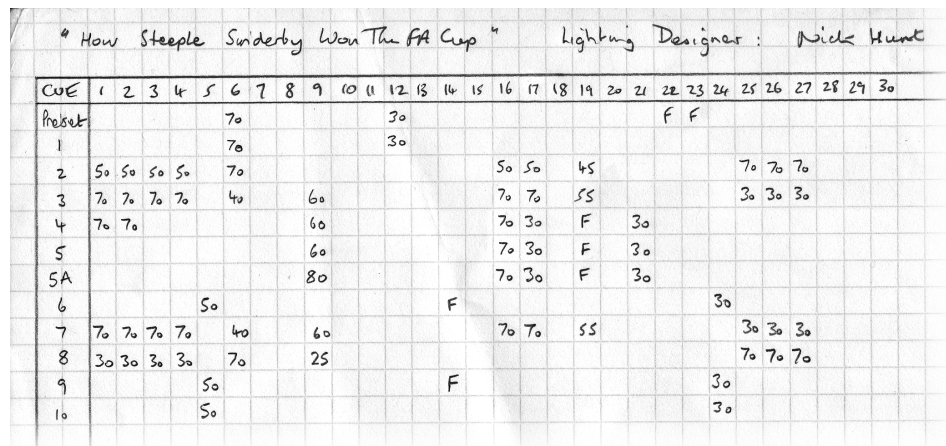 "How Steeple Sinderby Won The FA Cup" Lighting Designer: Nick Hunt
CUE 1 2 3 4 5 6 7 8 9 10 11 12 13 14 15 16 17 18 19 20 21 22 23 24 25 26 27 28 29 30
Preset 70 30 F F
1 70 30
2 50 50 50 50 70 50 50 45 70 70 70
3 70 70 70 70 40 60 70 70 55 30 30 30
4 70 70 60 70 30 F 30
5 60 70 30 F 30
5A 80 70 30 F 30
6 50 F 30
7 70 70 70 70 40 60 70 70 55 30 30 30
8 30 30 30 30 70 25 70 70 70
9 50 F 30
10 50 30